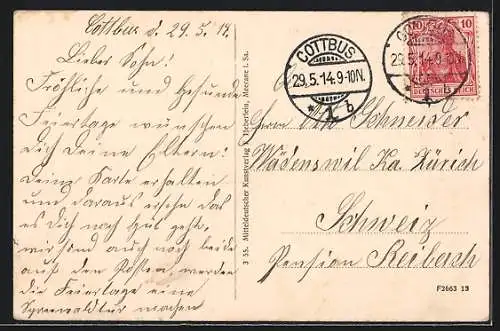 Cottbus d. 29.5.14
Lieber Sohn!
Fröhliche und gesunde
Feiertage wünschen
Dich Deine Eltern!
Deine Karte erhalten
und daraus ersehn das
es Dich noch gut geht,
wir sind auch noch beide
auf den Posten, werden
die Feiertage eine
Spreewaldtur machen
3 55. Mitteldeutscher Kunstverlag Heberlein, Meerane i. Sa.
COTTBUS
29.5.14.9-10N.
* 1 b
COTTBUS
29.5.14.9-10N.
10
DEUTSCHES REICH
Herrn Schneider
Wädenswil Ka. Zürich
Schweiz
Pension Reibach
F2663 13